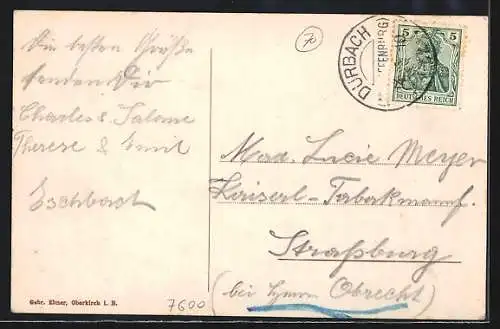 Die besten Grüße
senden Dir
Charles & Salome
Therese & Emil
Eschbach
Gebr. Elmer, Oberkirch i. B.
7600
70
DURBACH
(OFFENBURG)
5 5
DEUTSCHES REICH
Mad. Lucie Meyer
Kaiserl-Tabakmanuf.
Straßburg
(bei Herrn Obrecht)